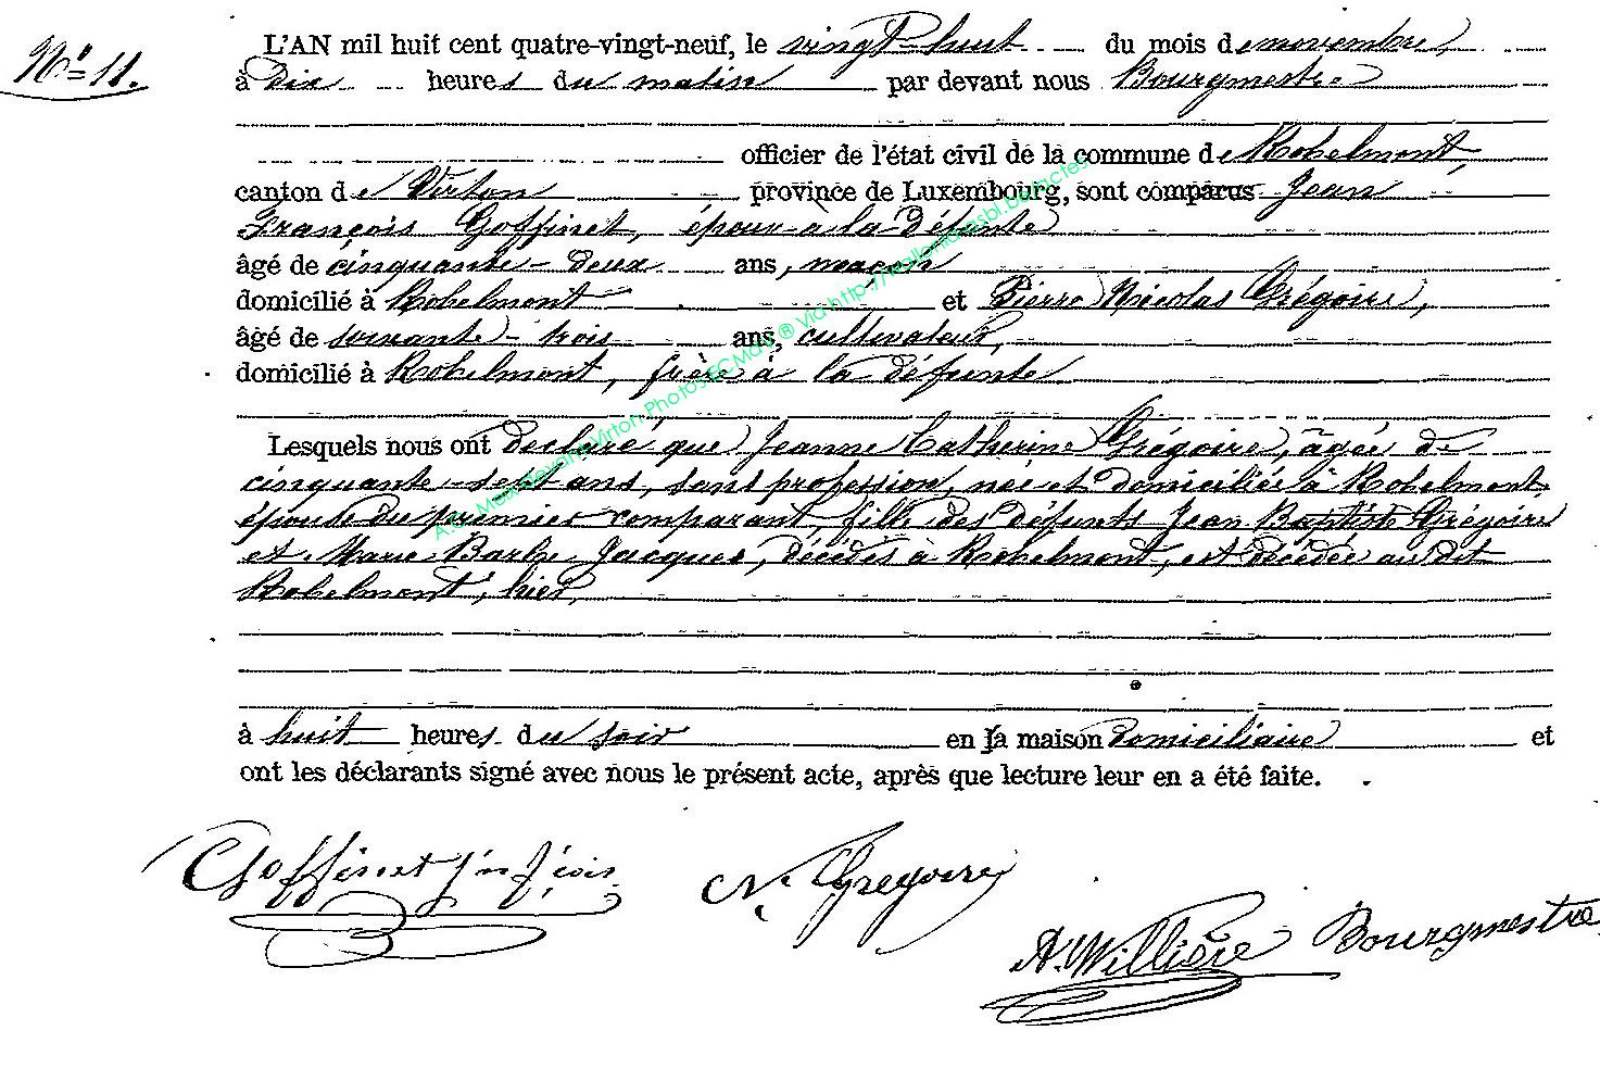 N° 11.
L'AN mil huit cent quatre-vingt-neuf, le vingt-huit du mois de novembre,
à dix heures du matin par devant nous Bourgmestre
officier de l'état civil de la commune de Robelmont,
canton de Virton province de Luxembourg, sont comparus Jean
François Goffinet, époux à la défunte
âgé de cinquante-deux ans, maçon
domicilié à Robelmont et Pierre Nicolas Grégoire,
âgé de soixante-trois ans, cultivateur,
domicilié à Robelmont, frère à la défunte
Lesquels nous ont déclaré que Jeanne Catherine Grégoire, âgée de
cinquante-sept ans, sans profession, née et domiciliée à Robelmont
épouse du premier comparant, fille des défunts Jean Baptiste Grégoire
et Marie Barbe Jacques, décédés à Robelmont, est décédée au dit
Robelmont, hier,
à huit heures du soir en la maison domiciliaire et
ont les déclarants signé avec nous le présent acte, après que lecture leur en a été faite.
Goffinet Jn fçois
N. Gregoire
A. Willière Bourgmestre
Meix devant Virton Photos ECMdV ® Via http://wallonia